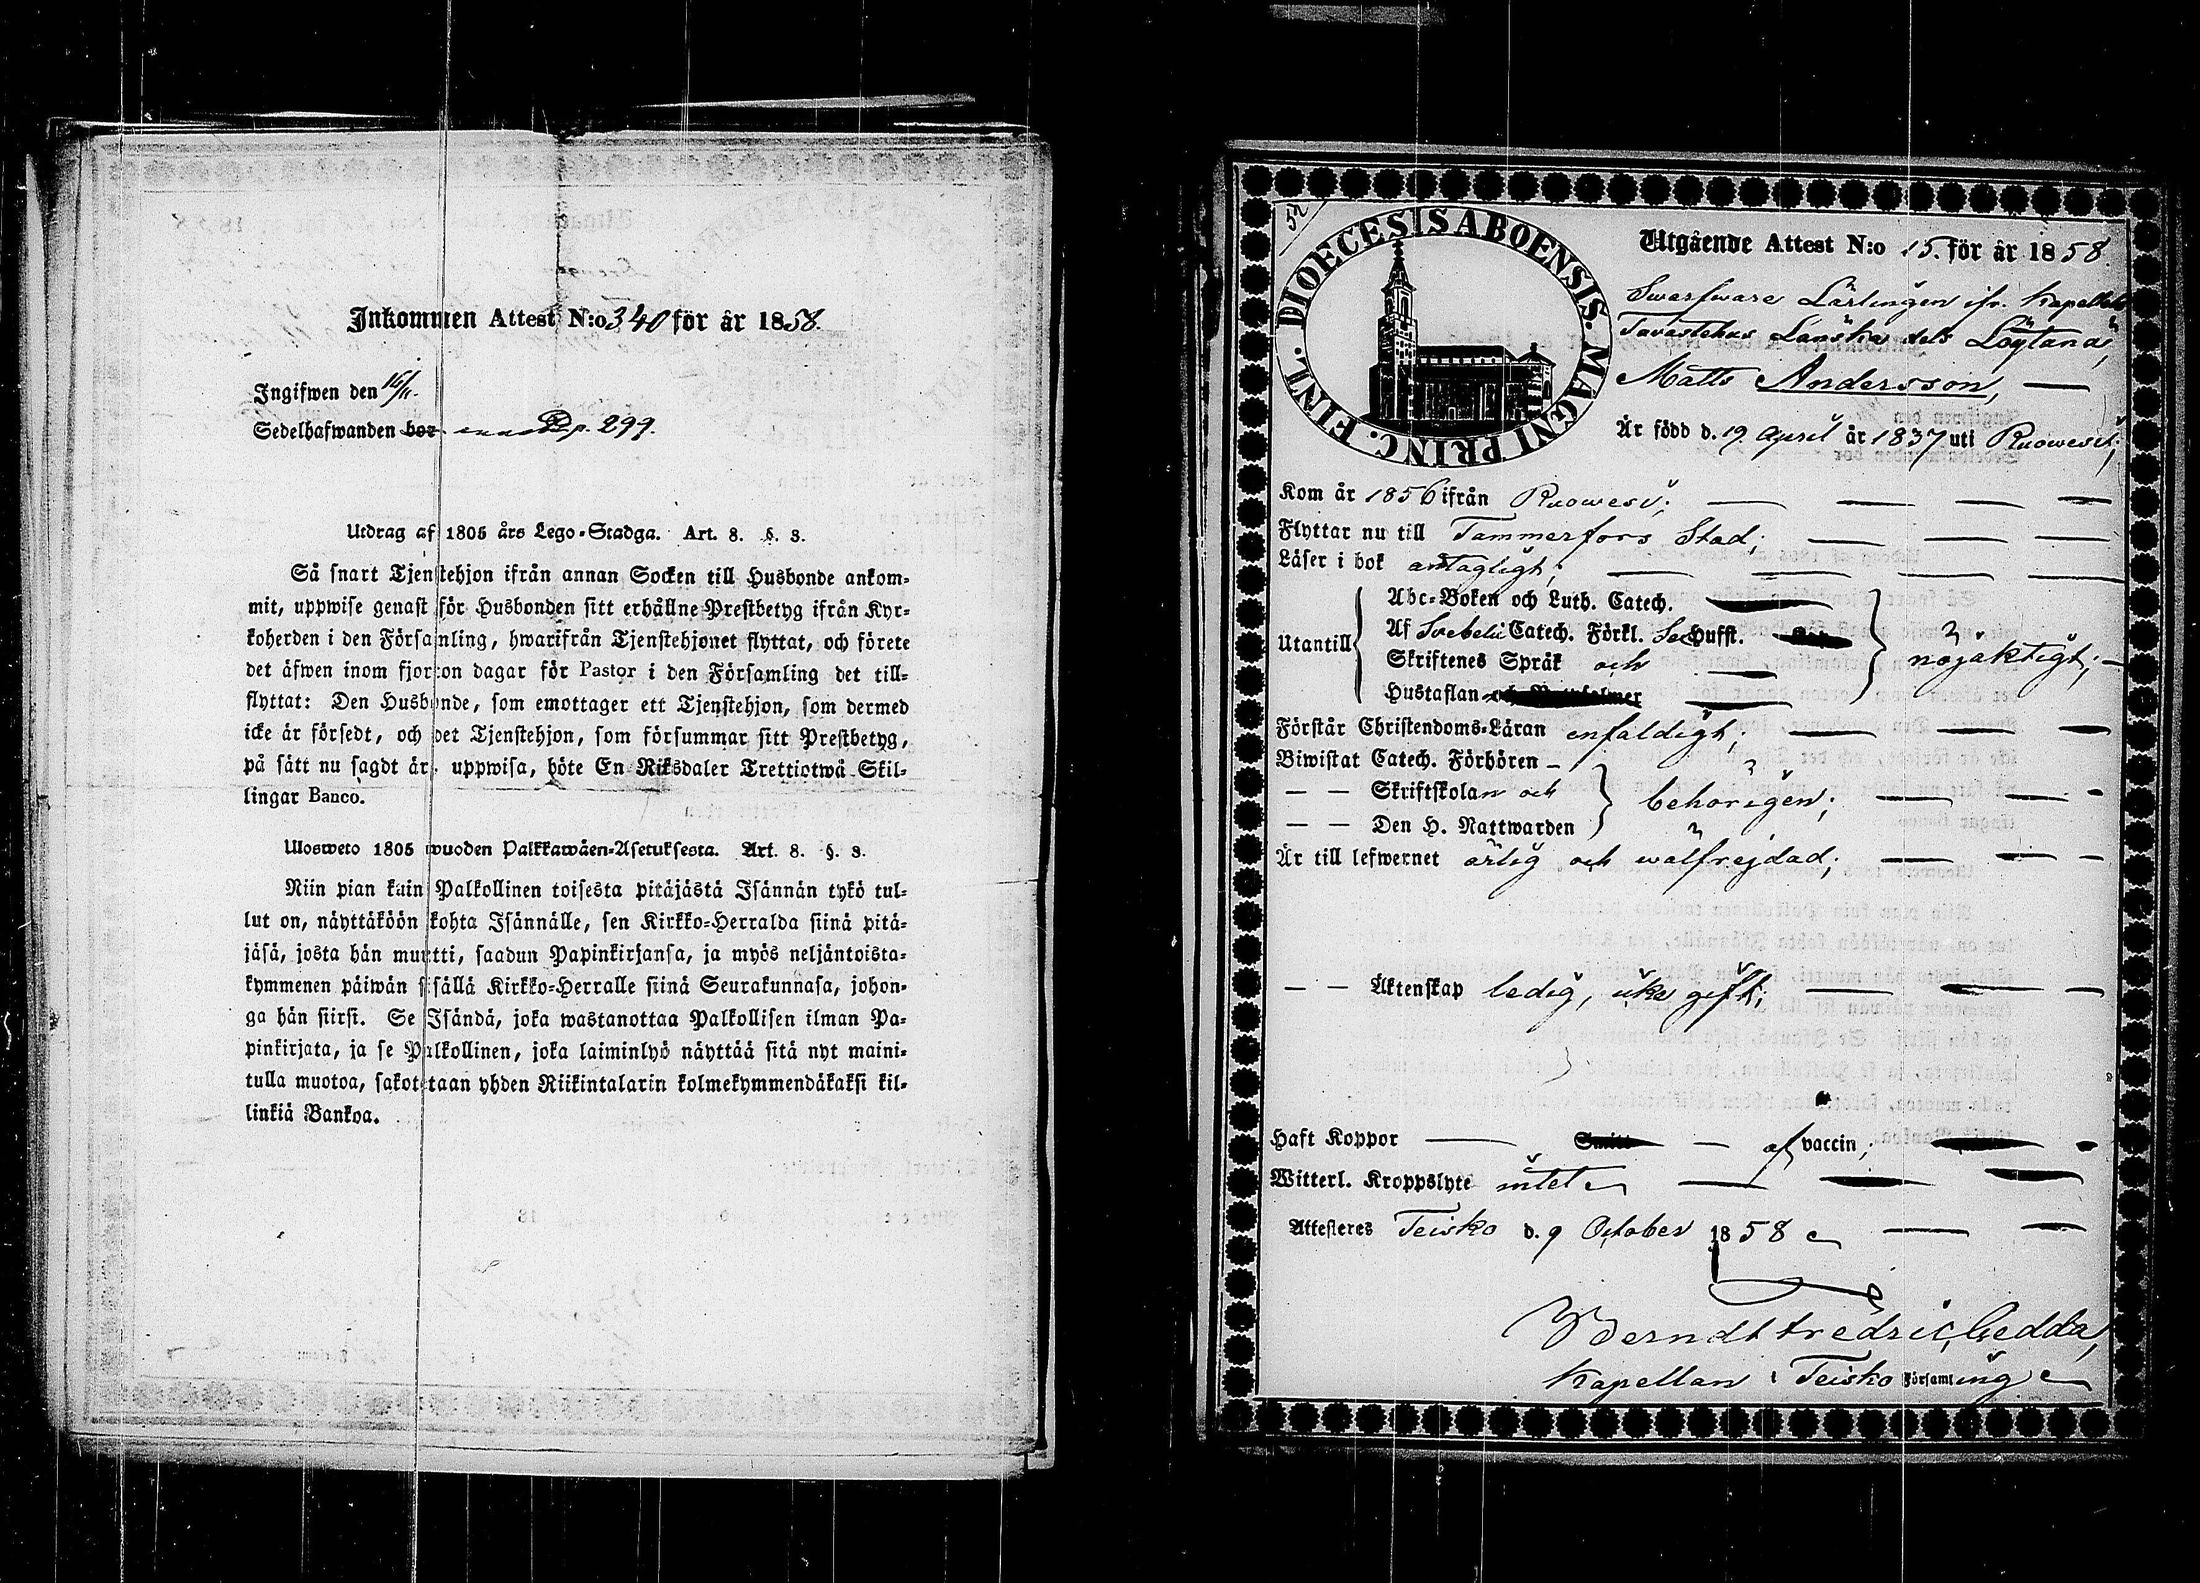 Inkommen Attest N:o 340 för år 1858.
Ingifwen den 16/11.
Sedelhafwanden bor p. 299.
Utdrag af 1805 års Lego-Stadga. Art. 8. §. 3.
Så snart Tjenstehjon ifrån annan Socken till Husbonde ankom-
mit, uppwise genast för Husbonden sitt erhållne Prestbetyg ifrån Kyr-
koherden i den Församling, hwarifrån Tjenstehjonet flyttat, och förete
det äfwen inom fjorton dagar för Pastor i den Församling det till-
flyttat: Den Husbonde, som emottager ett Tjenstehjon, som dermed
icke är försedt, och det Tjenstehjon, som försummar sitt Prestbetyg,
på sätt nu sagdt är, uppwisa, böte En Riksdaler Trettiotwå Skil-
lingar Banco.
Ulosweto 1805 wuoden Palkkawäen-Asetuksesta. Art. 8. §. 3.
Niin pian kuin Palkollinen toisesta pitäjästä Isännän tykö tul-
lut on, näyttäköön kohta Isännälle, sen Kirkko-Herralda siinä pitä-
jäsä, josta hän muutti, saadun Papinkirjansa, ja myös neljäntoista-
kymmenen päiwän sisällä Kirkko-Herralle siinä Seurakunnasa, johon-
ga hän siirsi. Se Isändä, joka wastanottaa Palkollisen ilman Pa-
pinkirjata, ja se Palkollinen, joka laiminlyö näyttää sitä nyt maini-
tulla muotoa, sakotetaan yhden Riikintalarin kolmekymmendäkaksi kil-
linkiä Bankoa.
52
DIOECESIS ABOENSIS. MAGNI PRINC. FINL.
Utgående Attest N:o 15. för år 1858.
Swarfware Lärlingen ifr. Kapellets
Tavastehus Länska dels Löytänä,
Matts Andersson,
Är född d. 19 April år 1837 uti Ruowesi;
Kom år 1856 ifrån Ruowesi;
Flyttar nu till Tammerfors Stad;
Läser i bok antagligt;
Utantill
Abc-Boken och Luth. Catech.
Af Svebelii Catech. Förkl. Hufst.
Skriftenes Språk och
Hustaflan
nöjaktigt;
Förstår Christendoms-Läran enfaldigt;
Biwistat Catech. Förhören
— — Skriftskolan och
— — Den H. Nattwarden
behörigen;
Är till lefwernet ärlig och wälfrejdad;
— — Äktenskap ledig, icke gift;
Haft Koppor — af vaccin;
Witterl. Kroppslyte intet
Attesteres Teisko d. 9 October 1858
Berndt Fredric Gedda,
Kapellan i Teisko Församling